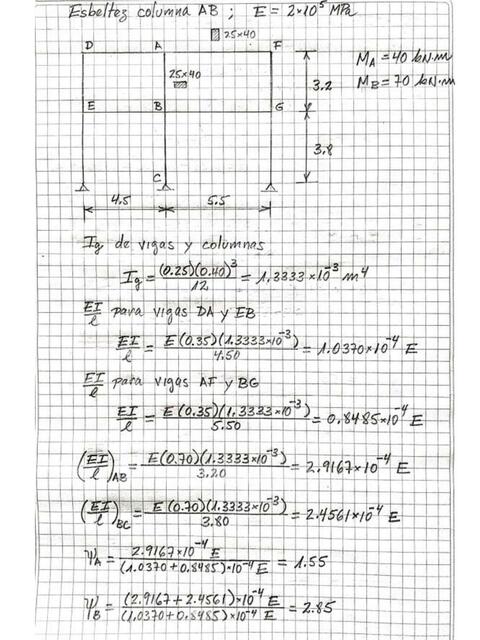 Esbeltez columna AB ; E = 2×10⁵ MPa
25×40
D A F
M_A = 40 kN·m
25×40
M_B = 70 kN·m
3.2
E B G
3.8
C
4.5 5.5
Ig de vigas y columnas
Ig = (0.25)(0.40)³/12 = 1.3333×10⁻³ m⁴
EI/l para vigas DA y EB
EI/l = E(0.35)(1.3333×10⁻³)/4.50 = 1.0370×10⁻⁴ E
EI/l para vigas AF y BG
EI/l = E(0.35)(1.3333×10⁻³)/5.50 = 0.8485×10⁻⁴ E
(EI/l)_AB = E(0.70)(1.3333×10⁻³)/3.20 = 2.9167×10⁻⁴ E
(EI/l)_BC = E(0.70)(1.3333×10⁻³)/3.80 = 2.4561×10⁻⁴ E
Ψ_A = 2.9167×10⁻⁴ E/(1.0370+0.8485)×10⁻⁴ E = 1.55
Ψ_B = (2.9167+2.4561)×10⁻⁴ E/(1.0370+0.8485)×10⁻⁴ E = 2.85